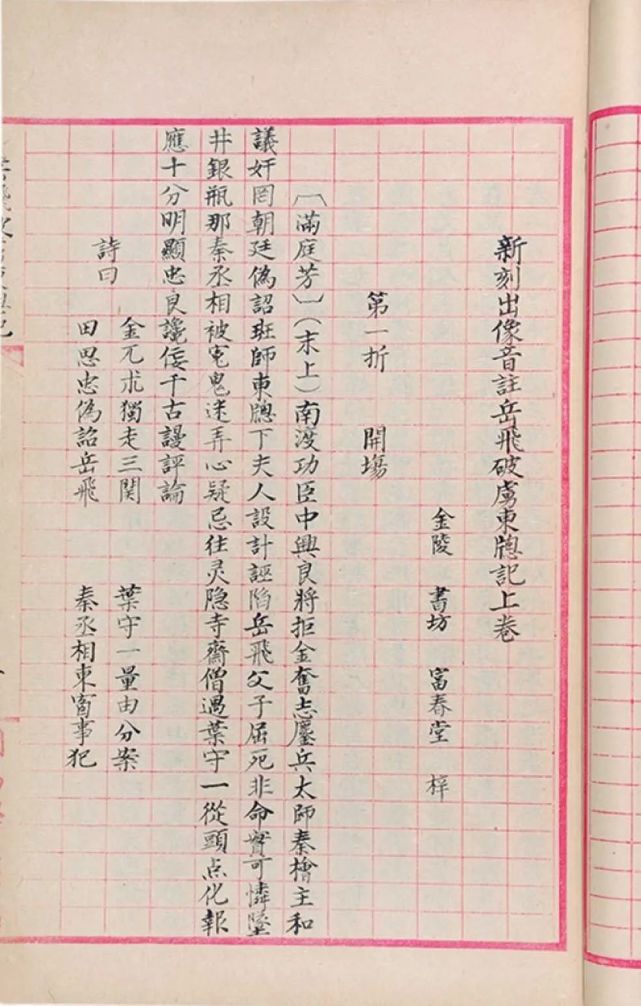 新刻出像音註岳飛破虜東牕記上卷
金陵 書坊 富春堂 梓
第一折 開塲
〔滿庭芳〕(末上)南渡功臣中興良將拒金奮志鏖兵太師秦檜主和
議奸罔朝廷偽詔班師東牕下夫人設計誣陷岳飛父子屈死非命實可憐墜
井銀瓶那秦丞相被冤鬼迷弄心疑忌往灵隐寺齋僧遇葉守一從頭点化報
應十分明顯忠良讒佞千古謾評論
詩曰
金兀朮獨走三関 葉守一量由分案
田思忠偽詔岳飛 秦丞相東窗事犯